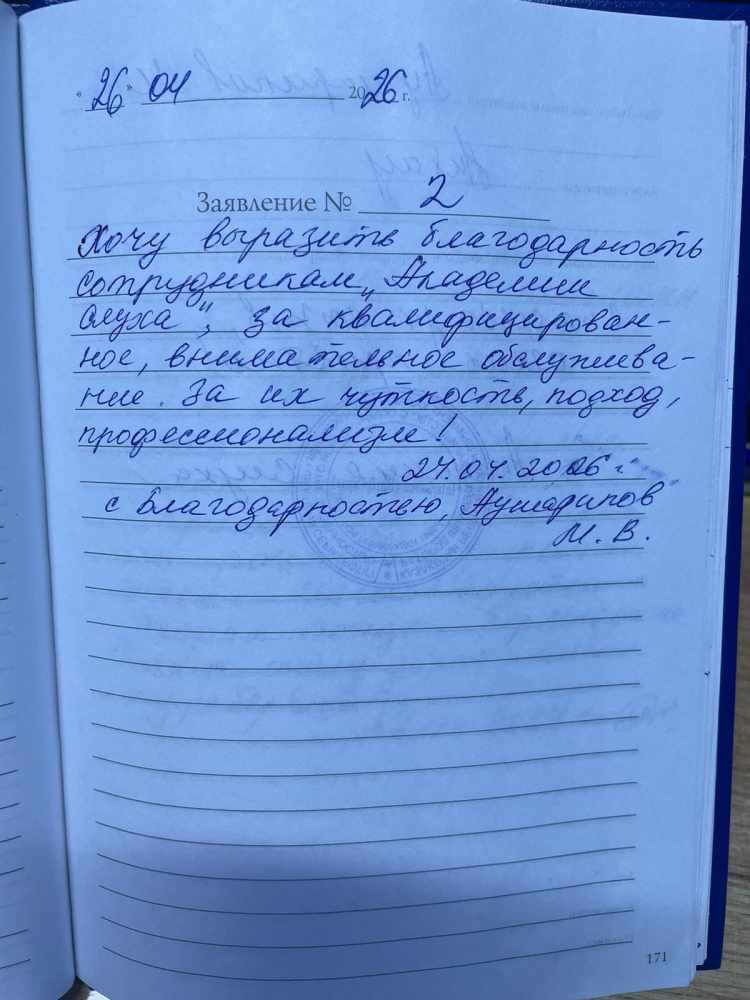 «26» 04 2026 г.
Заявление № 2
Хочу выразить благодарность
сотрудникам „Академии
слуха", за квалифицирован-
ное, внимательное обслужива-
ние. За их чуткость, подход,
профессионализм!
24.04.2026 г.
с Благодарностью, Аушарипов
М. В.
171